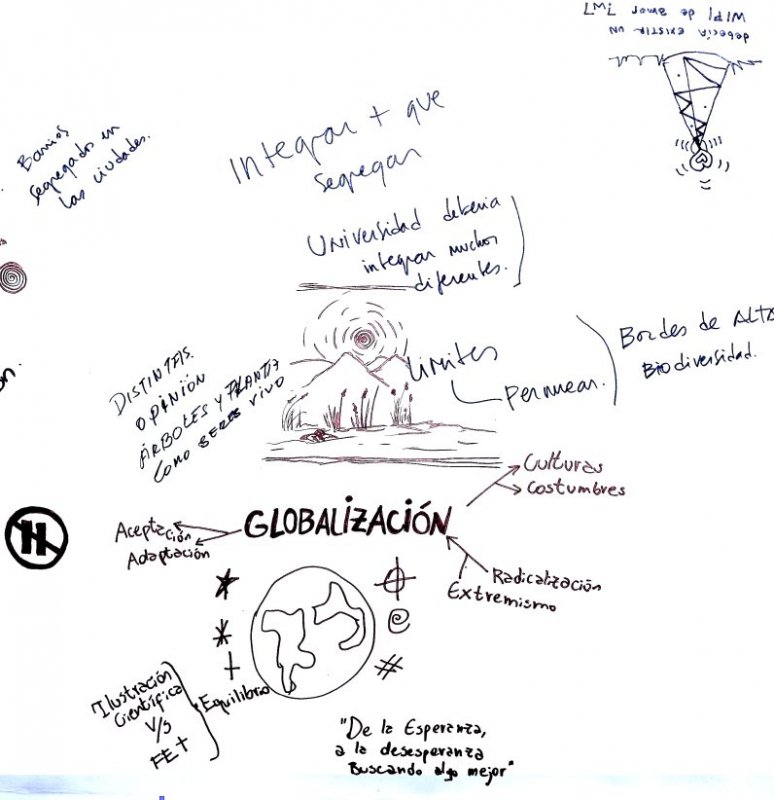 debecía existir un
WIFI de amor 7w7
Barrios
segregados en
las ciudades.
Integrar + que
segregar
Universidad deberia
integrar muchos
diferentes.
límites
Permear.
Bordes de Alta
Biodiversidad.
DISTINTAS
OPINIÓN
ÁRBOLES Y PLANTAS
COMO SERES VIVO
on.
Culturas
Costumbres
GLOBALIZACIÓN
Aceptación
Adaptación
Radicalización
Extremismo
H
@
#
Ilustración
Científica
V/S
FE +
Equilibrio
"De la Esperanza,
a la desesperanza
Buscando algo mejor"